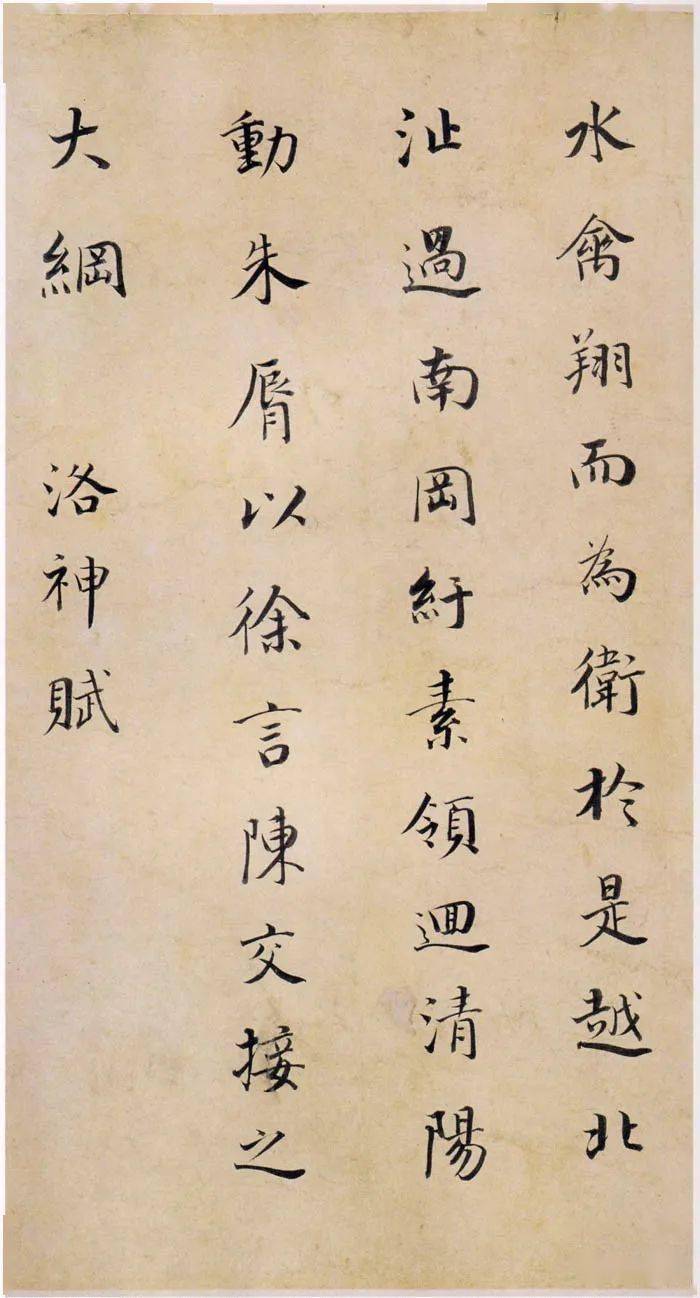 水禽翔而為衛於是越北
沚過南岡紆素領迴清陽
動朱脣以徐言陳交接之
大綱 洛神賦